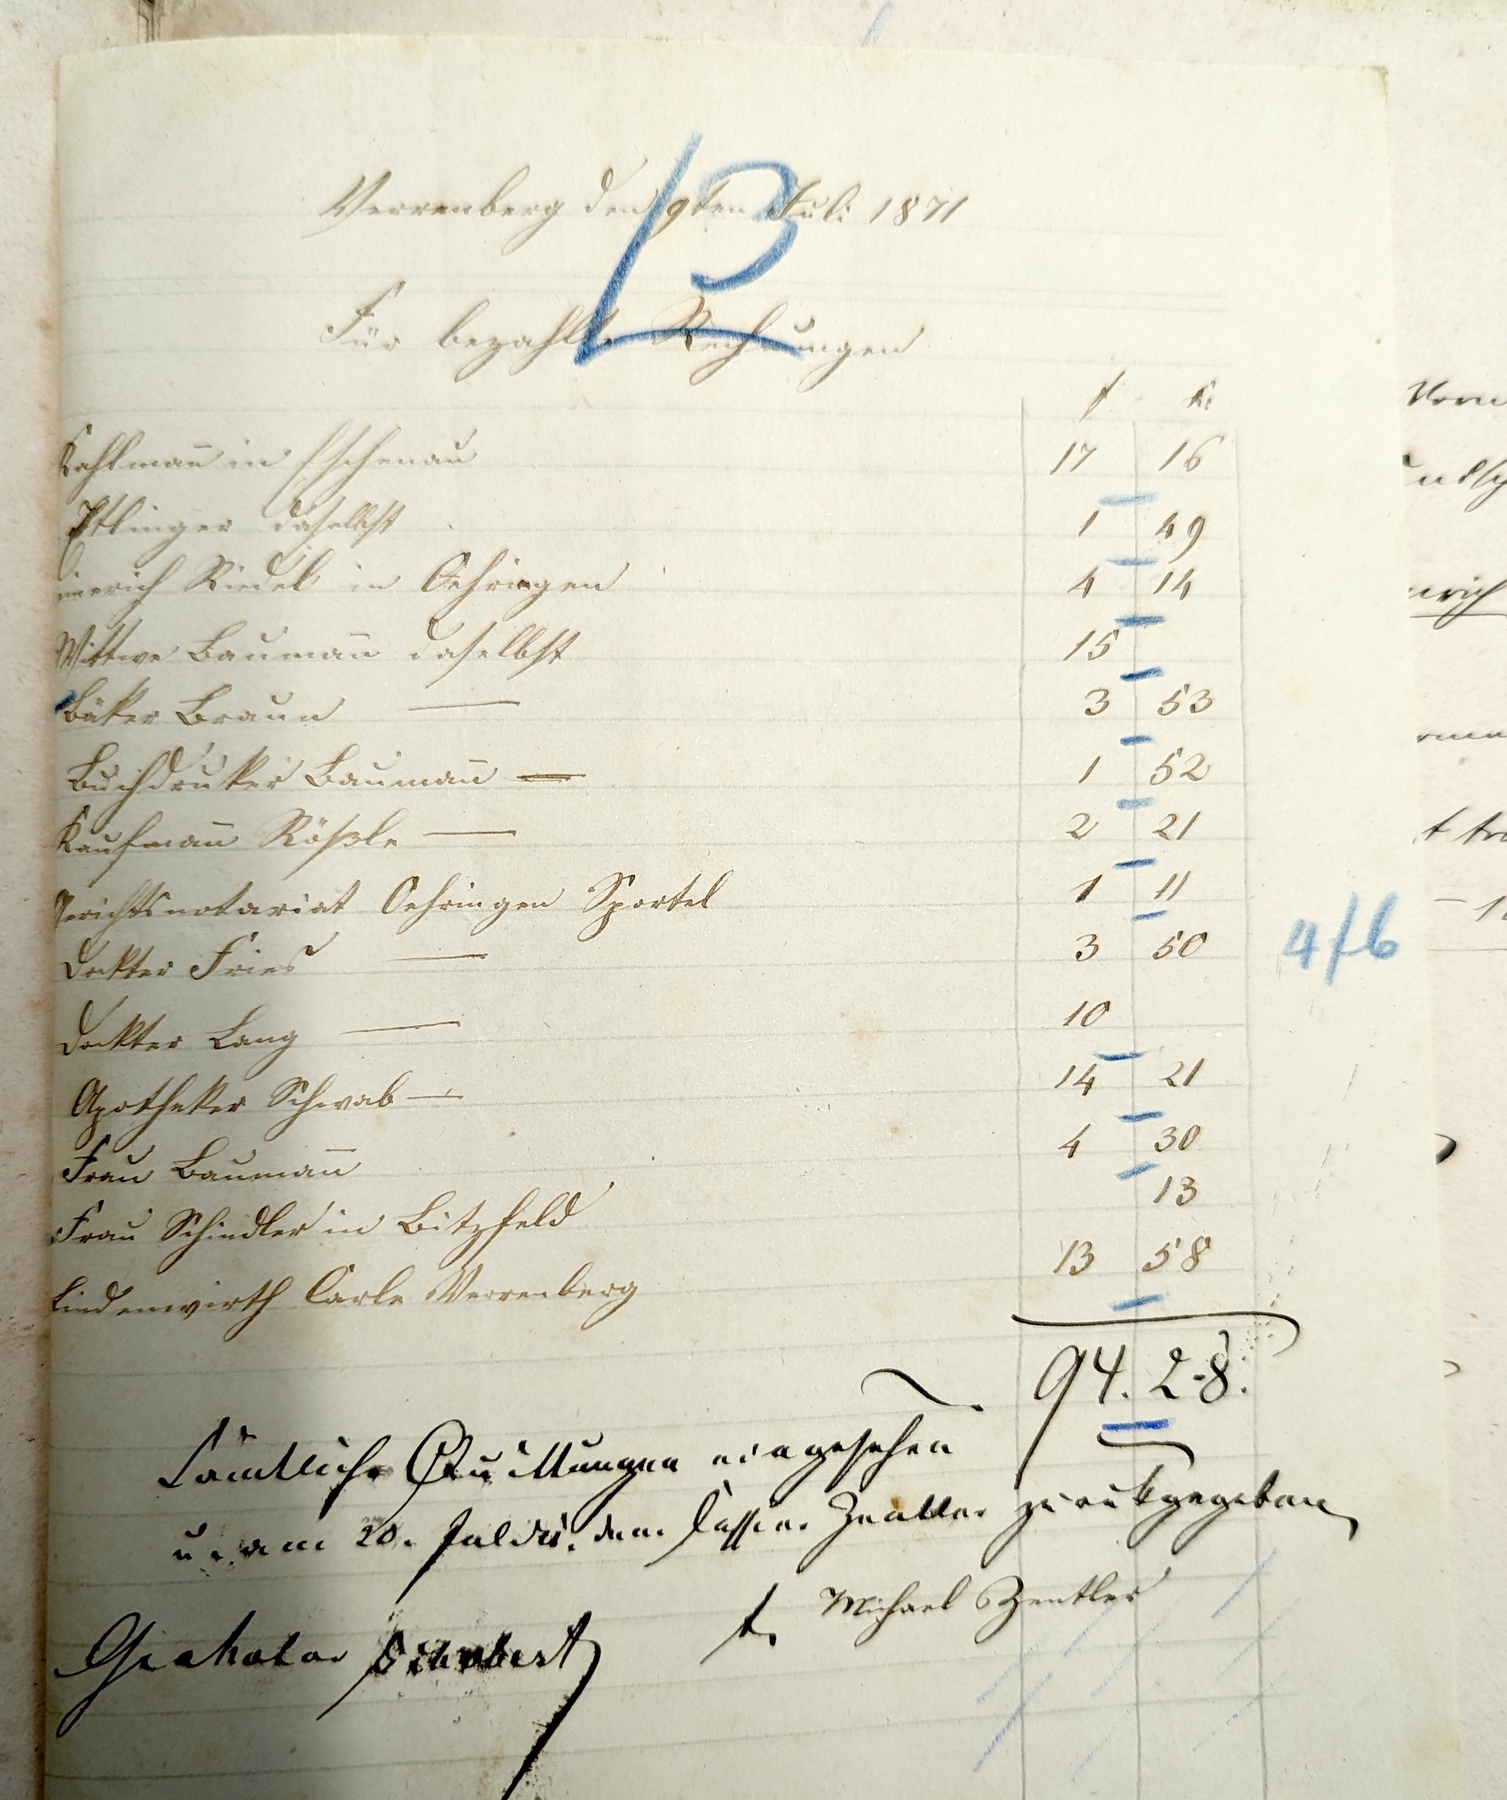 13
Verrenberg den 9ten Juli 1871
Für bezahlte Rechnungen
f kr
Kahlmañ in Eschenau 17 16
Ettlinger daselbst 1 49
Riedel in Oehringen 4 14
Wittwe Baumañ daselbst 15
Bäker Braun — 3 53
Buchdruker Baumañ — 1 52
Kaufmañ Rößle — 2 21
Gerichtsnotariat Oehringen Sportel 1 11
Dokter Fries — 3 50
4/6
Dokter Lang — 10
Apotheker Schwab — 14 21
Frau Baumañ 4 30
Frau Schindler in Bitzfeld 13
Lindenwirth Carle Verrenberg 13 58
94. 28.
Sämtliche Quittungen eingesehen
u. am 20. Juli ds. dem Zentler zurükgegeben
t. Michael Zentler
Schubert